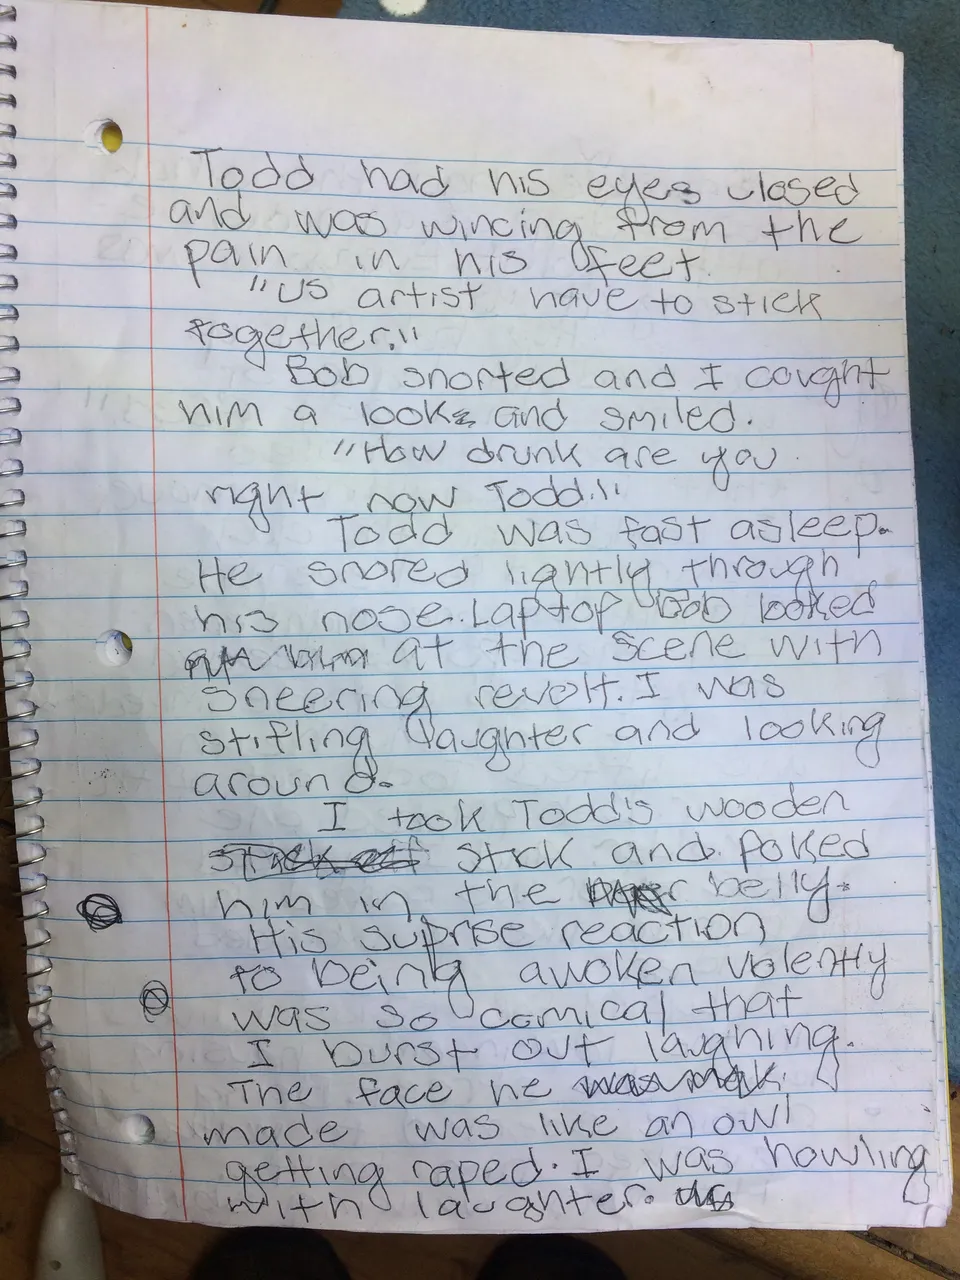 Todd had his eyes closed
and was wincing from the
pain in his feet.
"us artist have to stick
together."
Bob snorted and I caught
him a look and smiled.
"How drunk are you
right now Todd."
Todd was fast asleep.
He snored lightly through
his nose. Laptop Bob looked
at the scene with
sneering revolt. I was
stifling laughter and looking
around.
I took Todd's wooden
stick and poked
him in the belly.
His suprise reaction
to being awoken violently
was so comical that
I burst out laughing.
The face he
made was like an owl
getting raped. I was howling
with laughter.